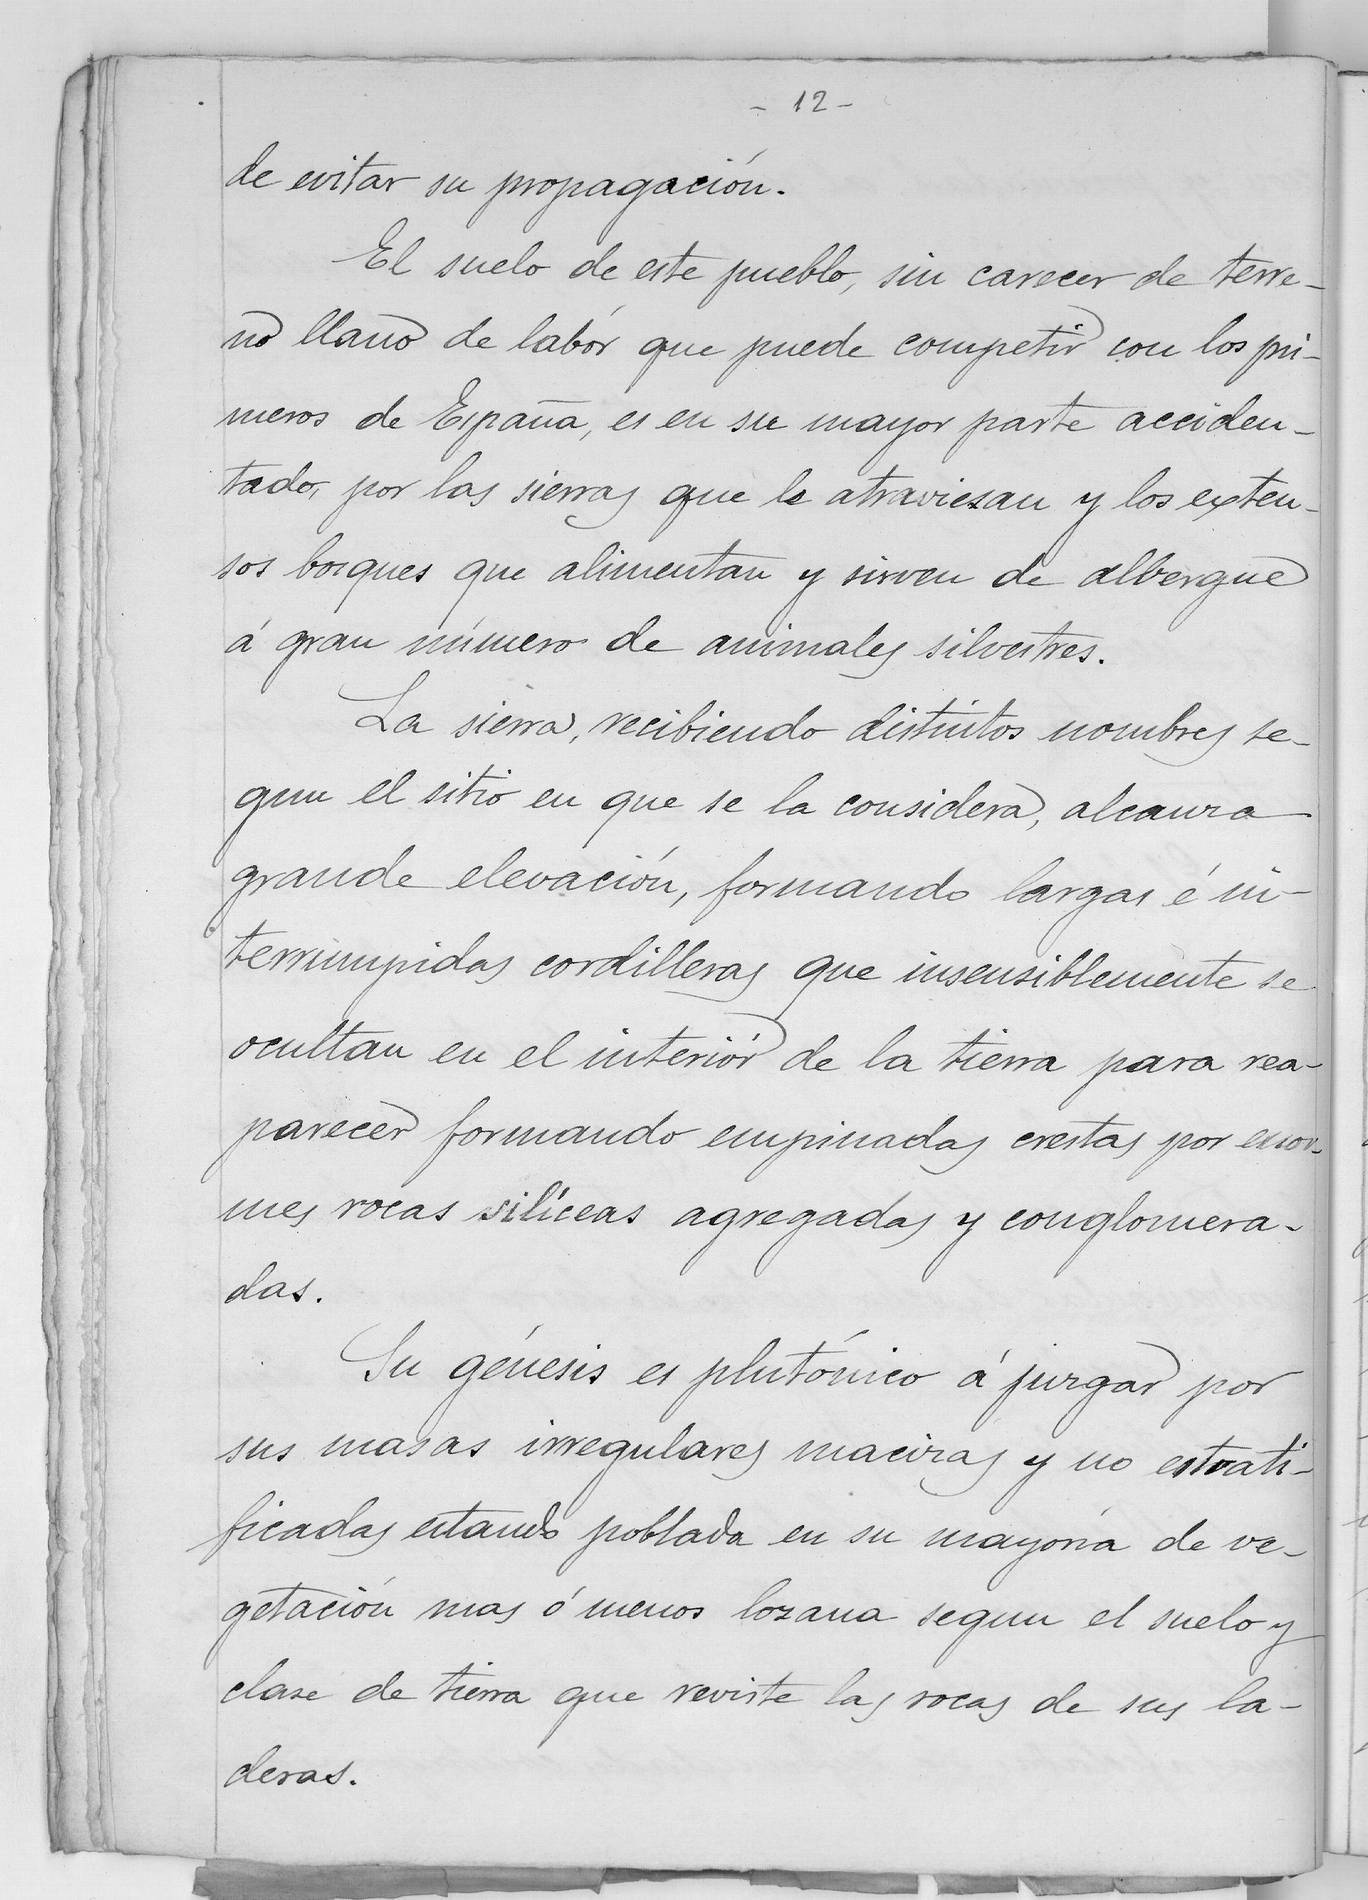 - 12 -
de evitar su propagación.
El suelo de este pueblo, sin carecer de terre-
no llano de labór que puede competir con los pri-
meros de España, es en su mayor parte acciden-
tado, por las sierras que le atraviesan y los exten-
sos bosques que alimentan y sirven de albergue
á gran número de animales silvestres.
La sierra, recibiendo distintos nombres se-
gun el sitio en que se la considera, alcanza
grande elevación, formando largas é in-
terrumpidas cordilleras que insensiblemente se
ocultan en el interiór de la tierra para rea-
parecer formando empinadas crestas por enor-
mes rocas silíceas agregadas y conglomera-
das.
Su génesis es plutónico á juzgar por
sus masas irregulares macizas y no estrati-
ficadas estando poblada en su mayoría de ve-
getación mas ó menos lozana segun el suelo y
clase de tierra que reviste las rocas de sus la-
deras.